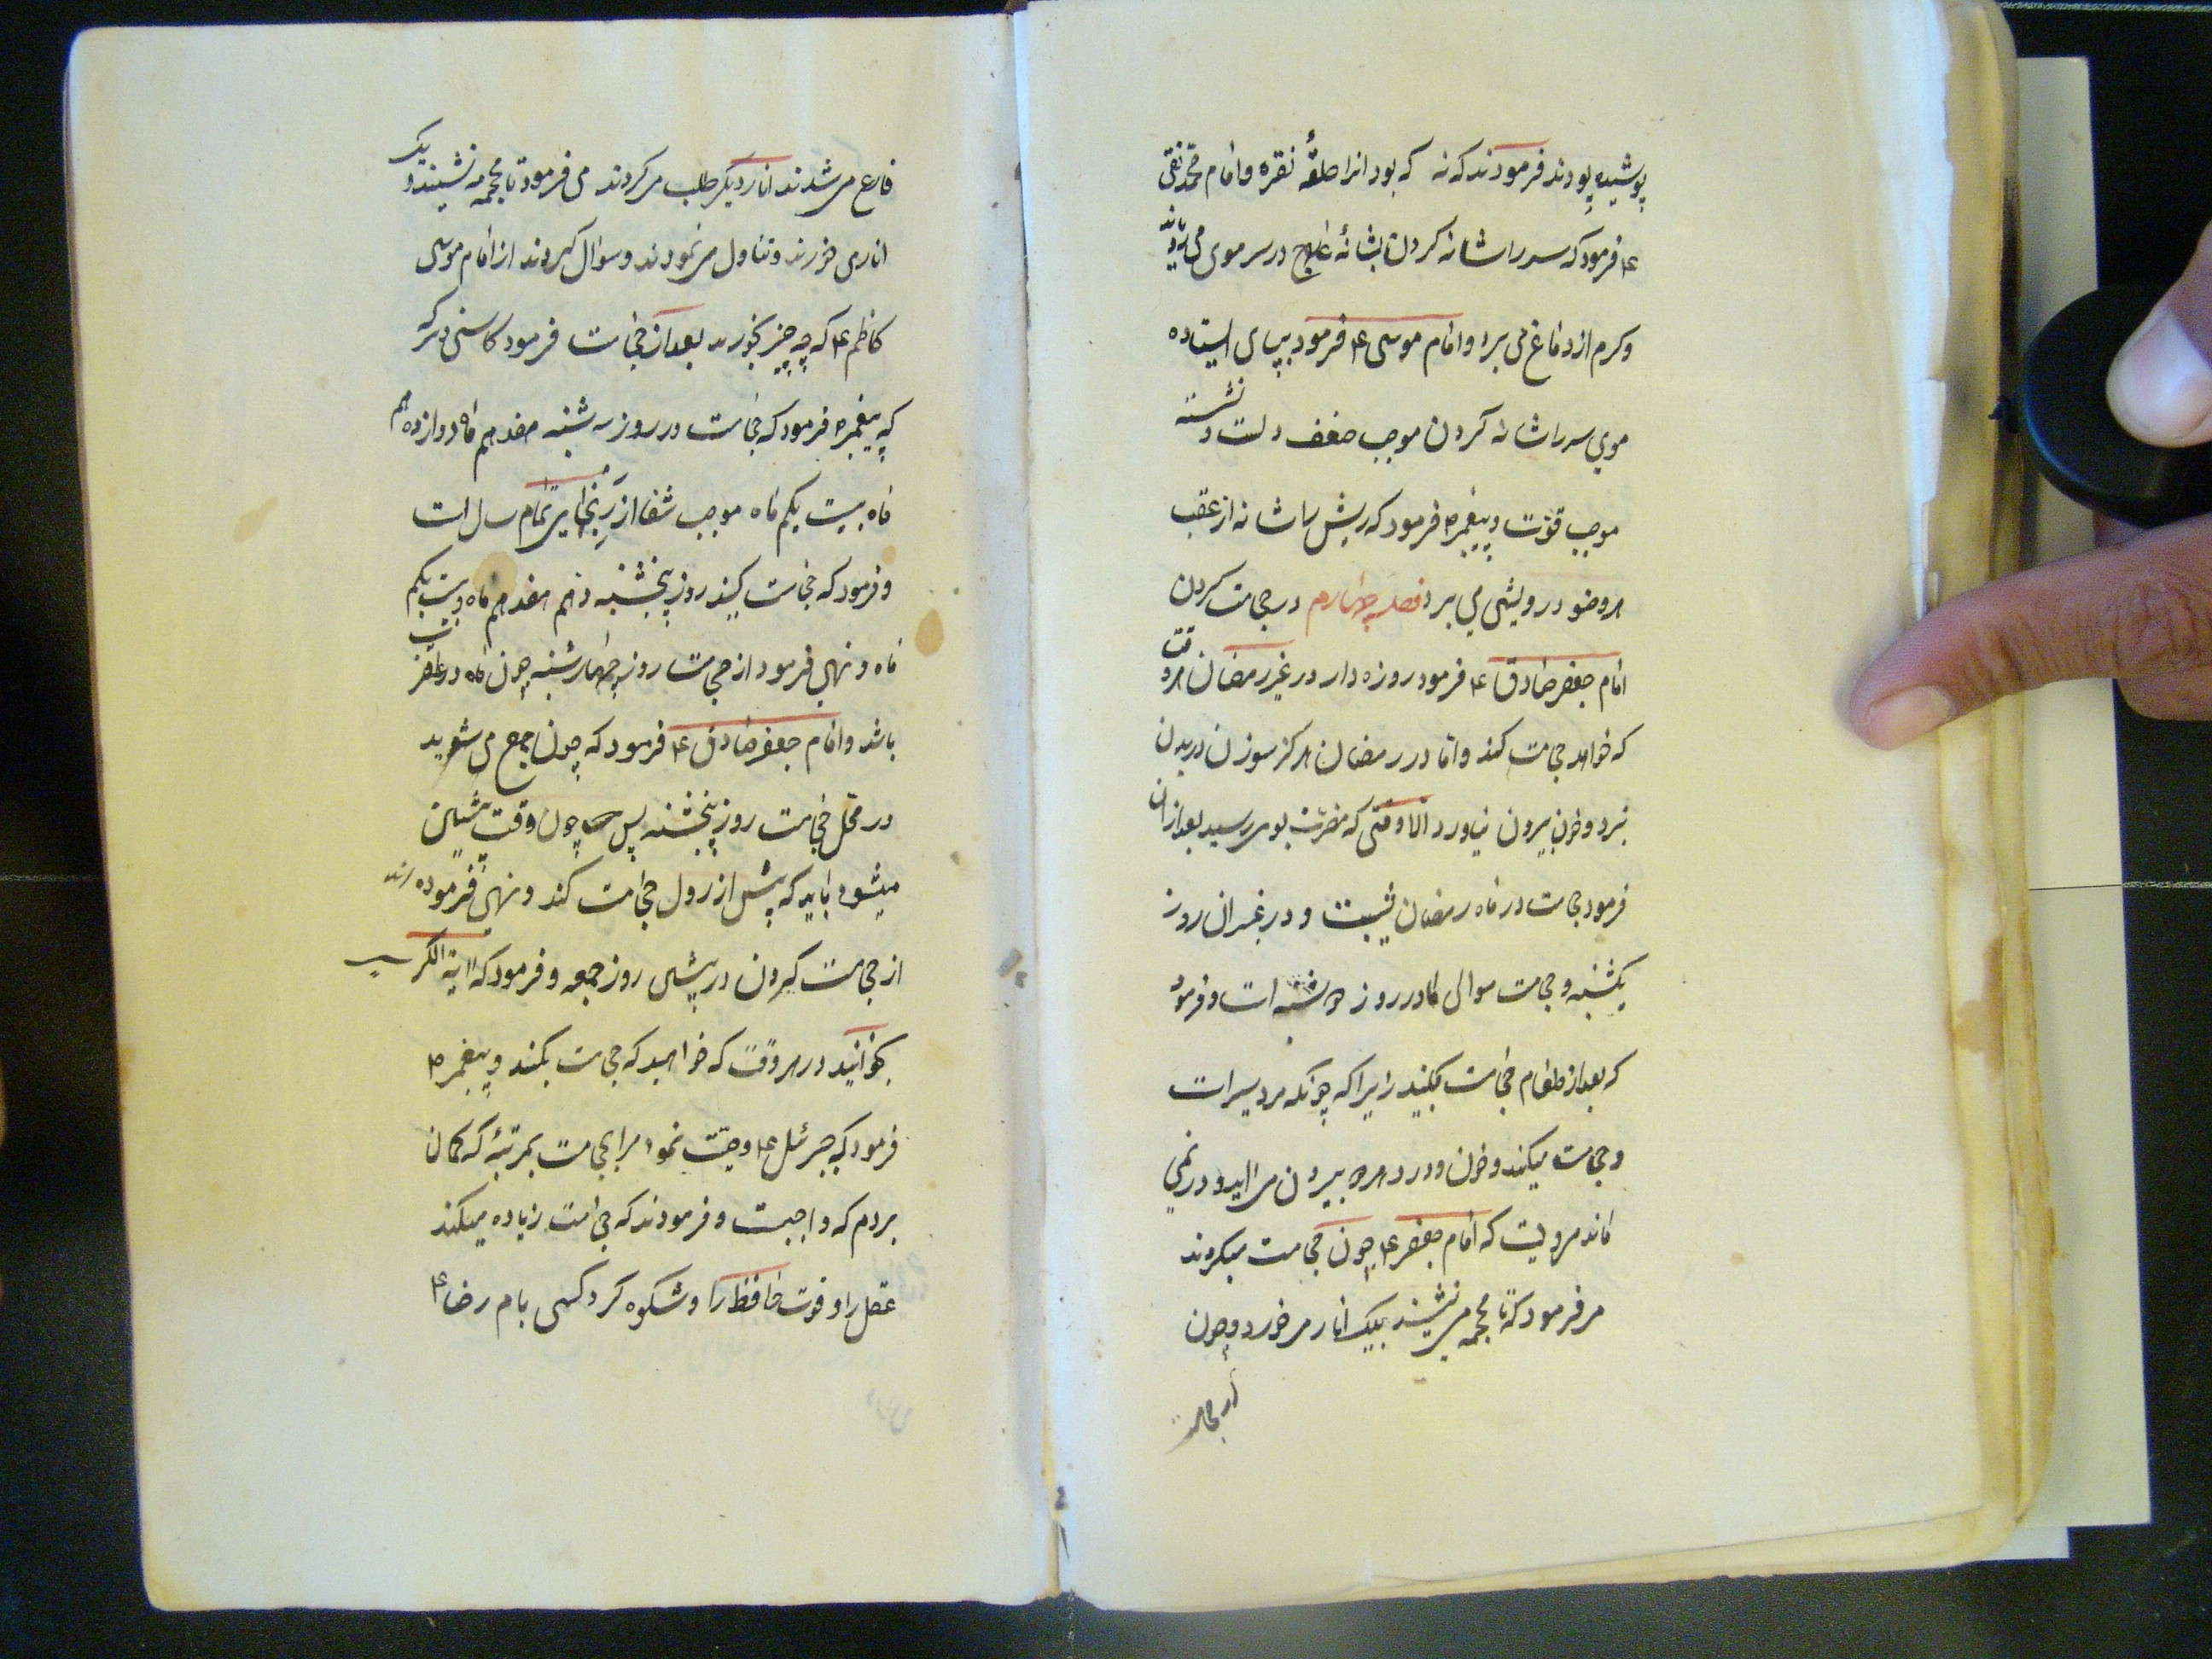 پوشیده بودند فرمودند که نه که بود انرا حلقهٔ نقره وامام محمد تقی
ع فرمود که سر را شانه کردن بشانهٔ عاج در سر موی می رویاند
وکرم از دماغ می برد وامام موسی ع فرمود بپای ایستاده
موی سر را شانه کردن موجب ضعف دلست و نشسته
موجب قوت و پیغمبر ص فرمود که ریش را شانه از عقب
هر وضو درویشی می برد فصل چهارم در حجامت کردن
امام جعفر صادق ع فرمود روزه دار در غیر رمضان هر وقت
که خواهد حجامت کند واما در رمضان هرگز سوزن در بدن
نبرد وخون بیرون نیاورد الا وقتی که مضرتی بوی رسید بعد ازان
فرمود حجامت در ماه رمضان نیست و در غیر ان روز
یکشنبه وحجامت موالی ما در روز دوشنبه است وفرمود
که بعد از طعام حجامت بکنید زیرا که چونکه مرد سیر است
وحجامت میکند وخون ودرد همه بیرون می اید و درد نمی
ماند مرویست که امام جعفر ع چون حجامت میکردند
می فرمود که تا محجمه می نشیند یک انار می خورد وچون
فارغ می شدند انار دیگر طلب می کردند می فرمود تا محجمه نشیند و یک
اناری خورند وتناول می نمودند وسوال کردند از امام موسی
کاظم ع که چه چیز بخورند بعد از حجامت فرمود کاسنی وسرکه
که پیغمبر ص فرمود که حجامت در روز سه شنبه هفدهم ماه دوازدهم
ماه بیست یکم ماه موجب شفا از رنجهای تمام سال است
وفرمود که حجامت کنید روز پنجشنبه دهم هفدهم ماه وبیست یکم
ماه ونهی فرمود از حجامت روز چهارشنبه چون ماه در عقرب
باشد وامام جعفر صادق ع فرمود که چون جمع می شوید
در محل حجامت روز پنجشنبه پس چون وقت پیشین
میشود باید که پیش از زوال حجامت کند ونهی فرموده اند
از حجامت کردن در پیشین روز جمعه وفرمود که آیة الکرسی
بخوانید در هر وقت که خواهید که حجامت بکنند وپیغمبر ص
فرمود که جبرئیل ع وصیت نمود مرا بحجامت بمرتبهٔ که گمان
بردم که واجبست وفرمودند که حجامت زیاده میکند
عقل را وقوت حافظه را وشکوه کرد کسی بامام رضا ع